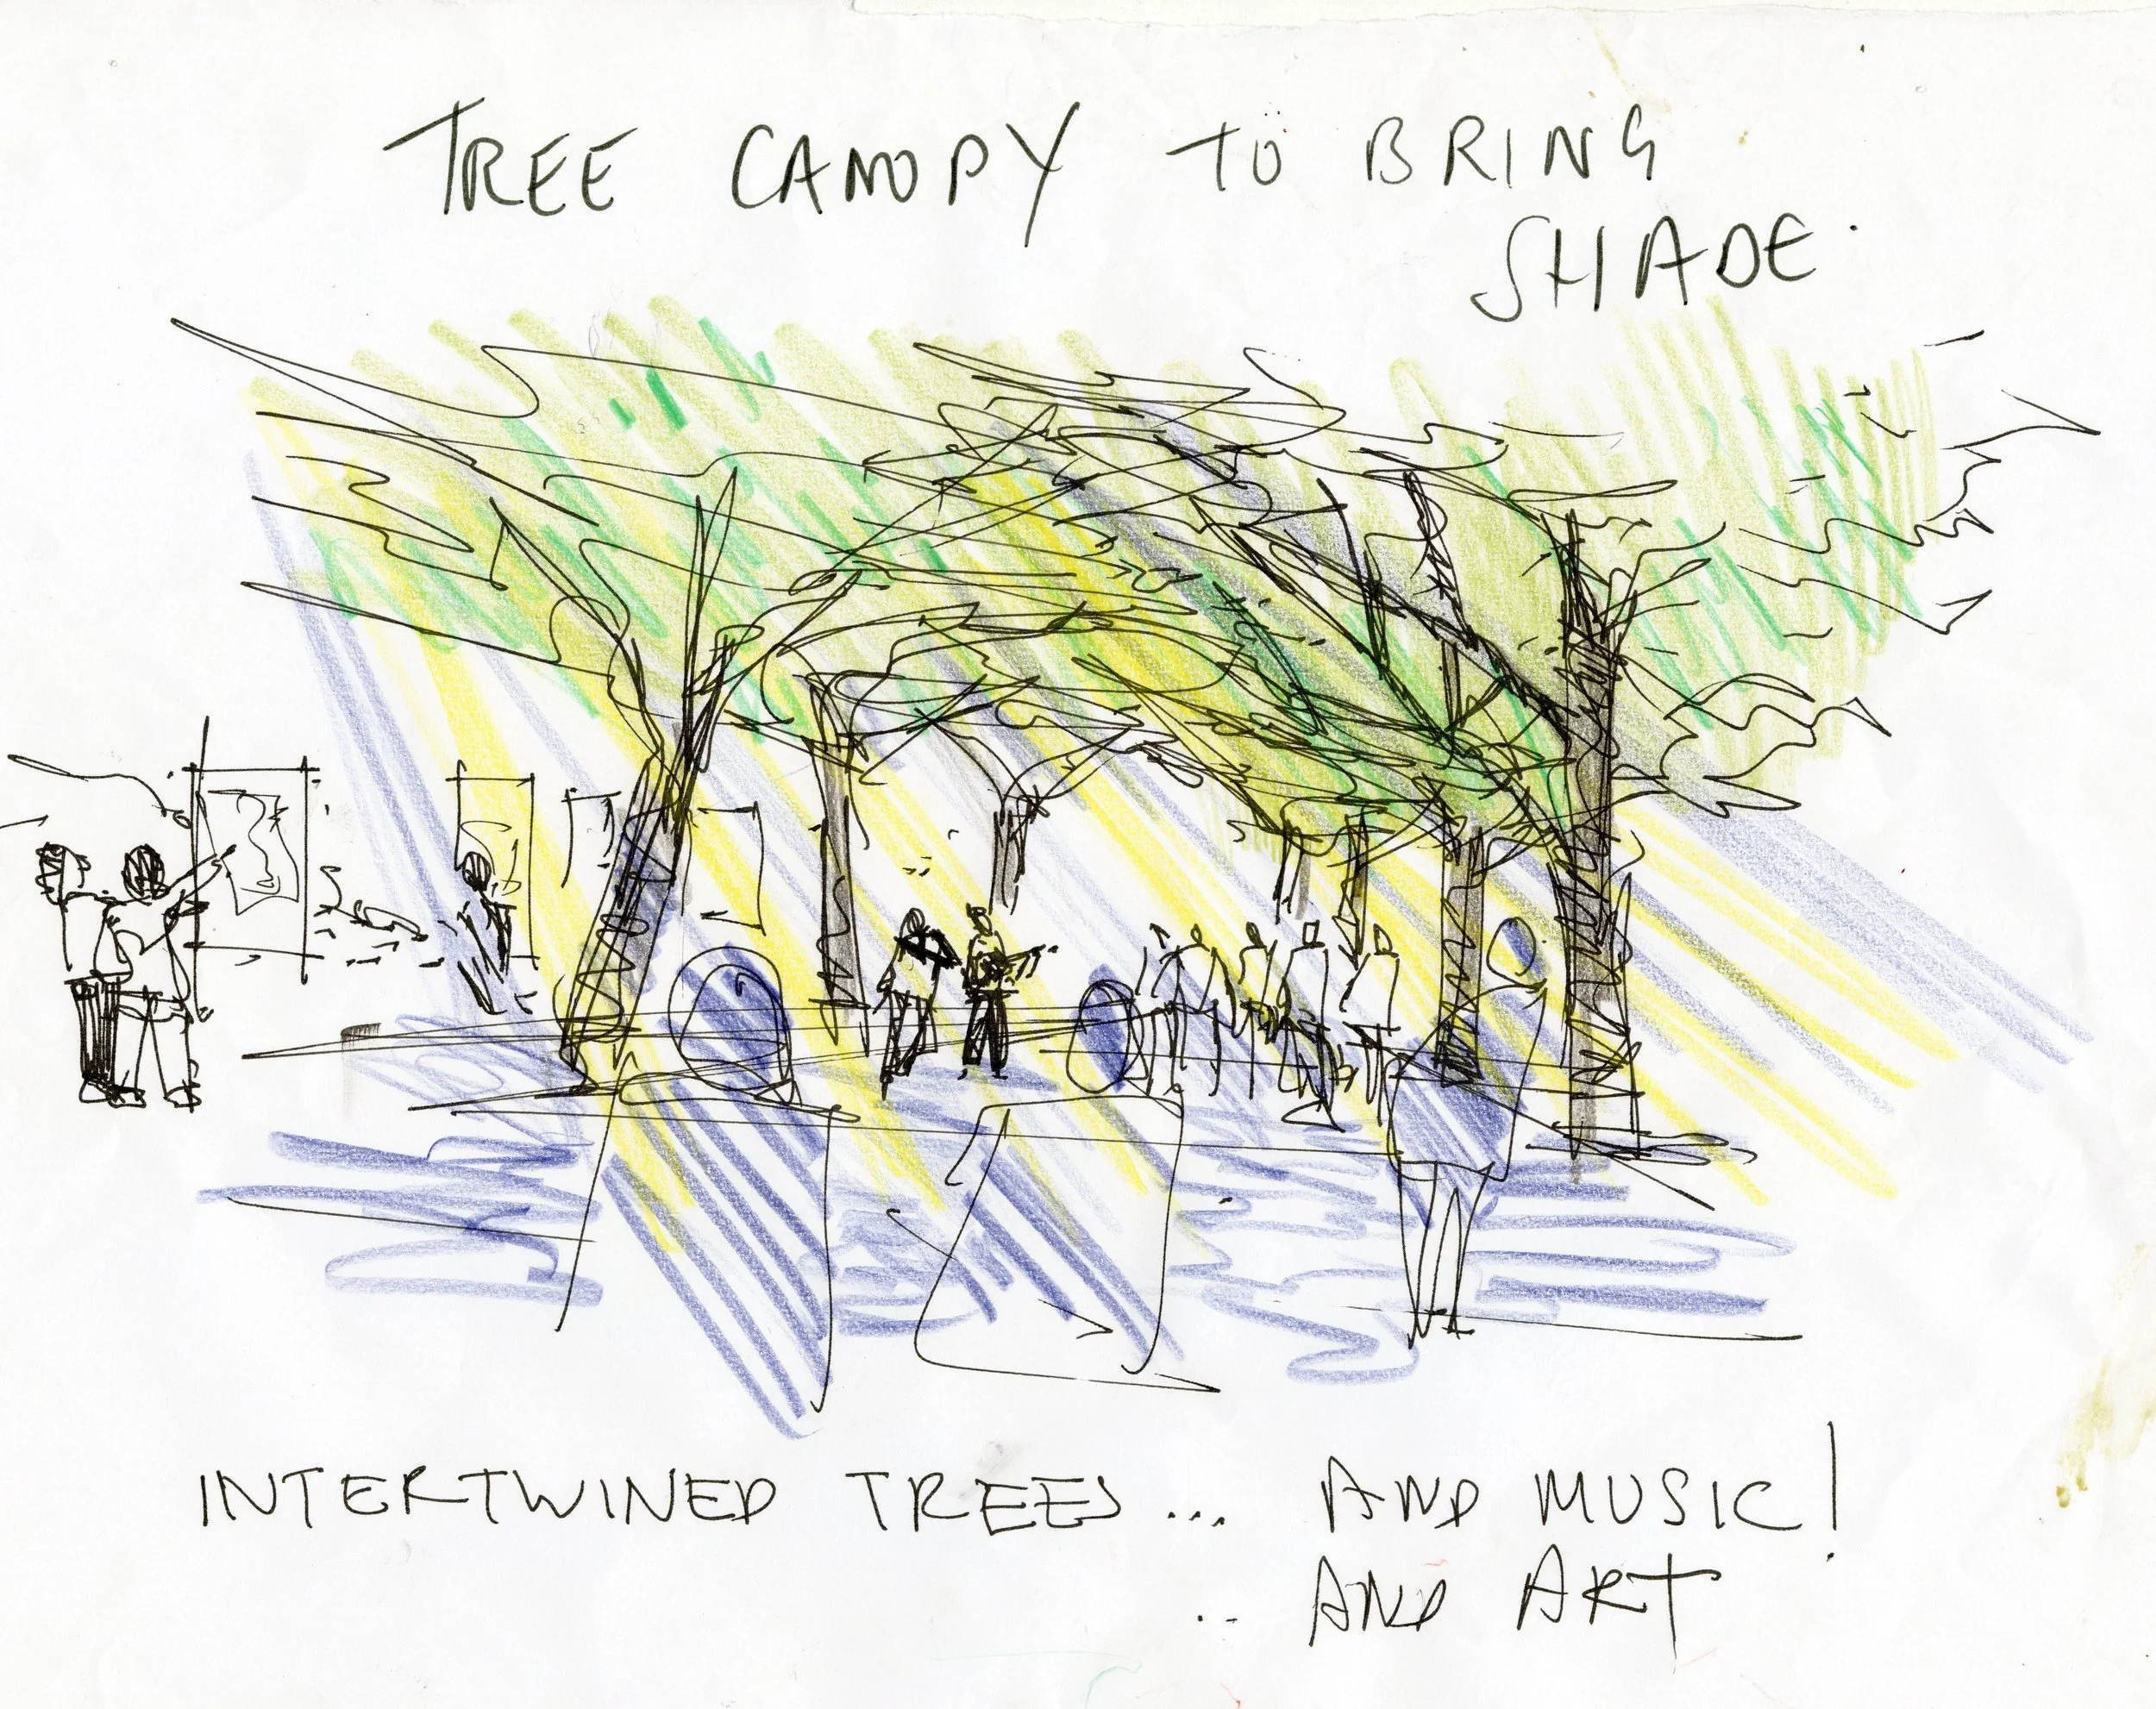 TREE CANOPY TO BRING
SHADE.
INTERTWINED TREES... AND MUSIC!
.. AND ART